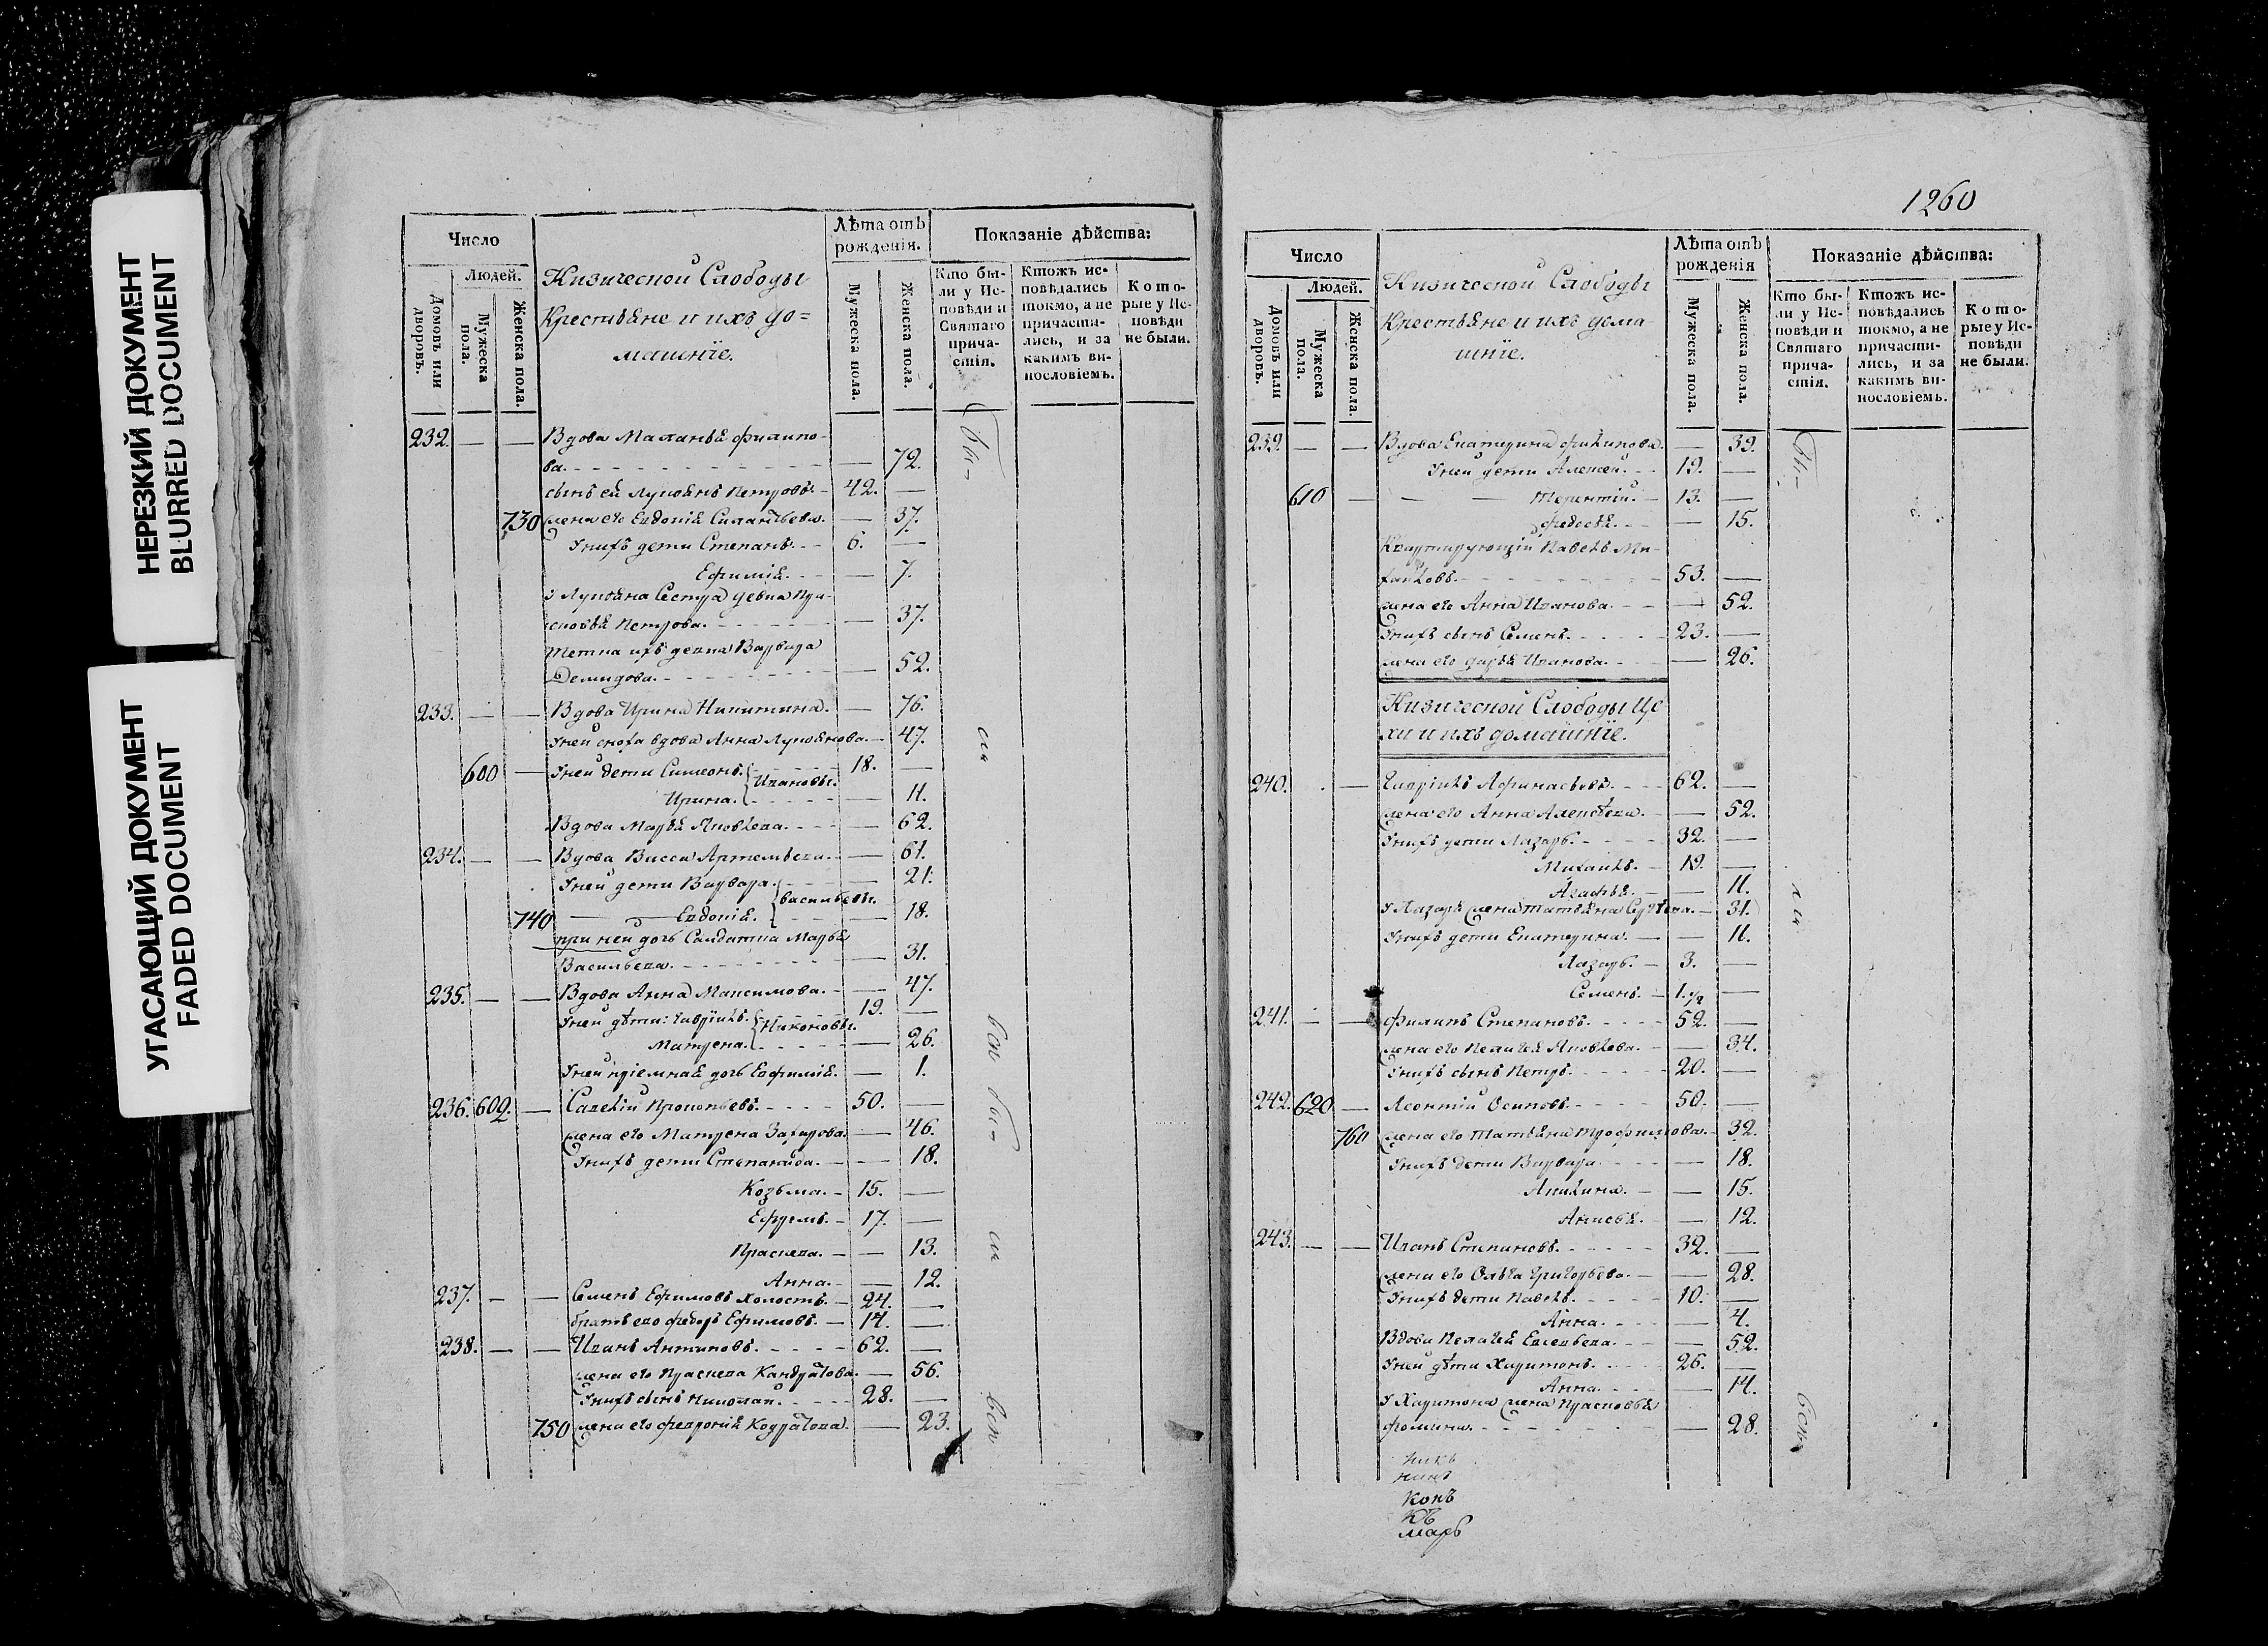 НЕРЕЗКИЙ ДОКУМЕНТ
BLURRED DOCUMENT
УГАСАЮЩИЙ ДОКУМЕНТ
FADED DOCUMENT
Число
Людей.
Домовъ или дворовъ.
Мужеска пола.
Женска пола.
Кизической Слободы
Крестьяне и ихъ до=
машніе.
Лѣта отъ рожденія.
Мужеска пола.
Женска пола.
Показаніе дѣйства:
Кто бы-
ли у Ис-
повѣди и
Святаго
прича-
стія.
Ктожъ ис-
повѣдались
токмо, а не
причасти-
лись, и за
какимъ ви-
нословіемъ.
Кото-
рые у Ис-
повѣди
не были.
232. — — Вдова Маланья филипо-
ва. — 72.
сынъ ей Лукоянъ Петровъ. 42. —
730 жена его Евдокія Силантьева. — 37.
у нихъ дети Степанъ. 6. —
Ефимія. — 7.
у Лукояна Сестра девка Пра-
сковья Петрова. — 37.
Тетка ихъ девка Варвара
Демидова. — 52.
233. — — Вдова Ирина Никитина. — 76.
у ней сноха вдова Анна Лукоянова. — 47.
600 — у ней дети Симеонъ. Ивановы. 18. —
Ирина. — 11.
Вдова Марья Яковлева. — 62.
234. — — Вдова Васса Артемьева. — 61.
у ней дети Варвара. — 21.
Васильевы.
740 Евдокія. — 18.
при ней дочь Салдатка Марья
Васильева. — 31.
235. — — Вдова Анна Максимова. — 47.
у ней дѣти: Гаврiилъ. Никоновы. 19. —
Матрена. — 26.
у ней пріемная дочь Евфимія. — 1.
236. 602. — Савелій Прокопьевъ. 50. —
жена его Матрена Захарова. — 46.
у нихъ дети Степанида. — 18.
Козьма. 15. —
Ефремъ. 17. —
Праскева. — 13.
Анна. — 12.
237. — — Семенъ Ефимовъ холостъ. 24. —
братъ ево федоръ Ефимовъ. 14. —
238. — — Иванъ Антиповъ. 62. —
жена его Праскева Кандратова. — 56.
у нихъ сынъ Николай. 28. —
750 жена его феврония Кодратова. — 23.
1260
Число
Людей.
Домовъ или дворовъ.
Мужеска пола.
Женска пола.
Кизической Слободы
Крестьяне и ихъ дома
шніе.
Лѣта отъ рожденія
Мужеска пола.
Женска пола.
Показаніе дѣйства:
Кто бы-
ли у Ис-
повѣди и
Святаго
прича-
стія.
Ктожъ ис-
повѣдались
токмо, а не
причасти-
лись, и за
какимъ ви-
нословіемъ.
Кото-
рые у Ис-
повѣди
не были.
239. — — Вдова Екатерина филипова. — 39.
у ней дети Алексей. 19. —
610 — Терентій. 13. —
федосья. — 15.
Квартирующій Павелъ Ми-
хаиловъ. 53. —
жена его Анна Иванова. — 52.
у нихъ сынъ Семенъ. 23. —
жена его дарья Иванова. — 26.
Кизической Слободы Це
хи и ихъ домашніе.
240. — Гавріилъ Афонасьевъ. 62. —
жена его Анна Алексѣева. — 52.
у нихъ дети Лазарь. 32. —
Михаилъ. 19. —
Агафья. — 11.
у Лазаря жена Татьяна Сергѣева. — 31.
у нихъ дети Екатерина. — 11.
Лазарь. 3. —
Семенъ. 1.1/2 —
241. — — филипъ Степановъ. 52. —
жена его Пелагея Яковлева. — 34.
у нихъ сынъ Петръ. 20. —
242. 620 — Леонтій Осиповъ. 50. —
760 жена его Татьяна Трофимова. — 32.
у нихъ дети Варвара. — 18.
Акилина. — 15.
Анисья. — 12.
243. — — Иванъ Степановъ. 32. —
жена его Ольга Григорьева. — 28.
у нихъ дети Павелъ. 10. —
Анна. — 4.
Вдова Пелагея Евсевьева. — 52.
у ней дѣти Харитонъ. 26. —
Анна. — 14.
у Харитона жена Прасковья
фомина. — 28.
Конъ
Къ
марь